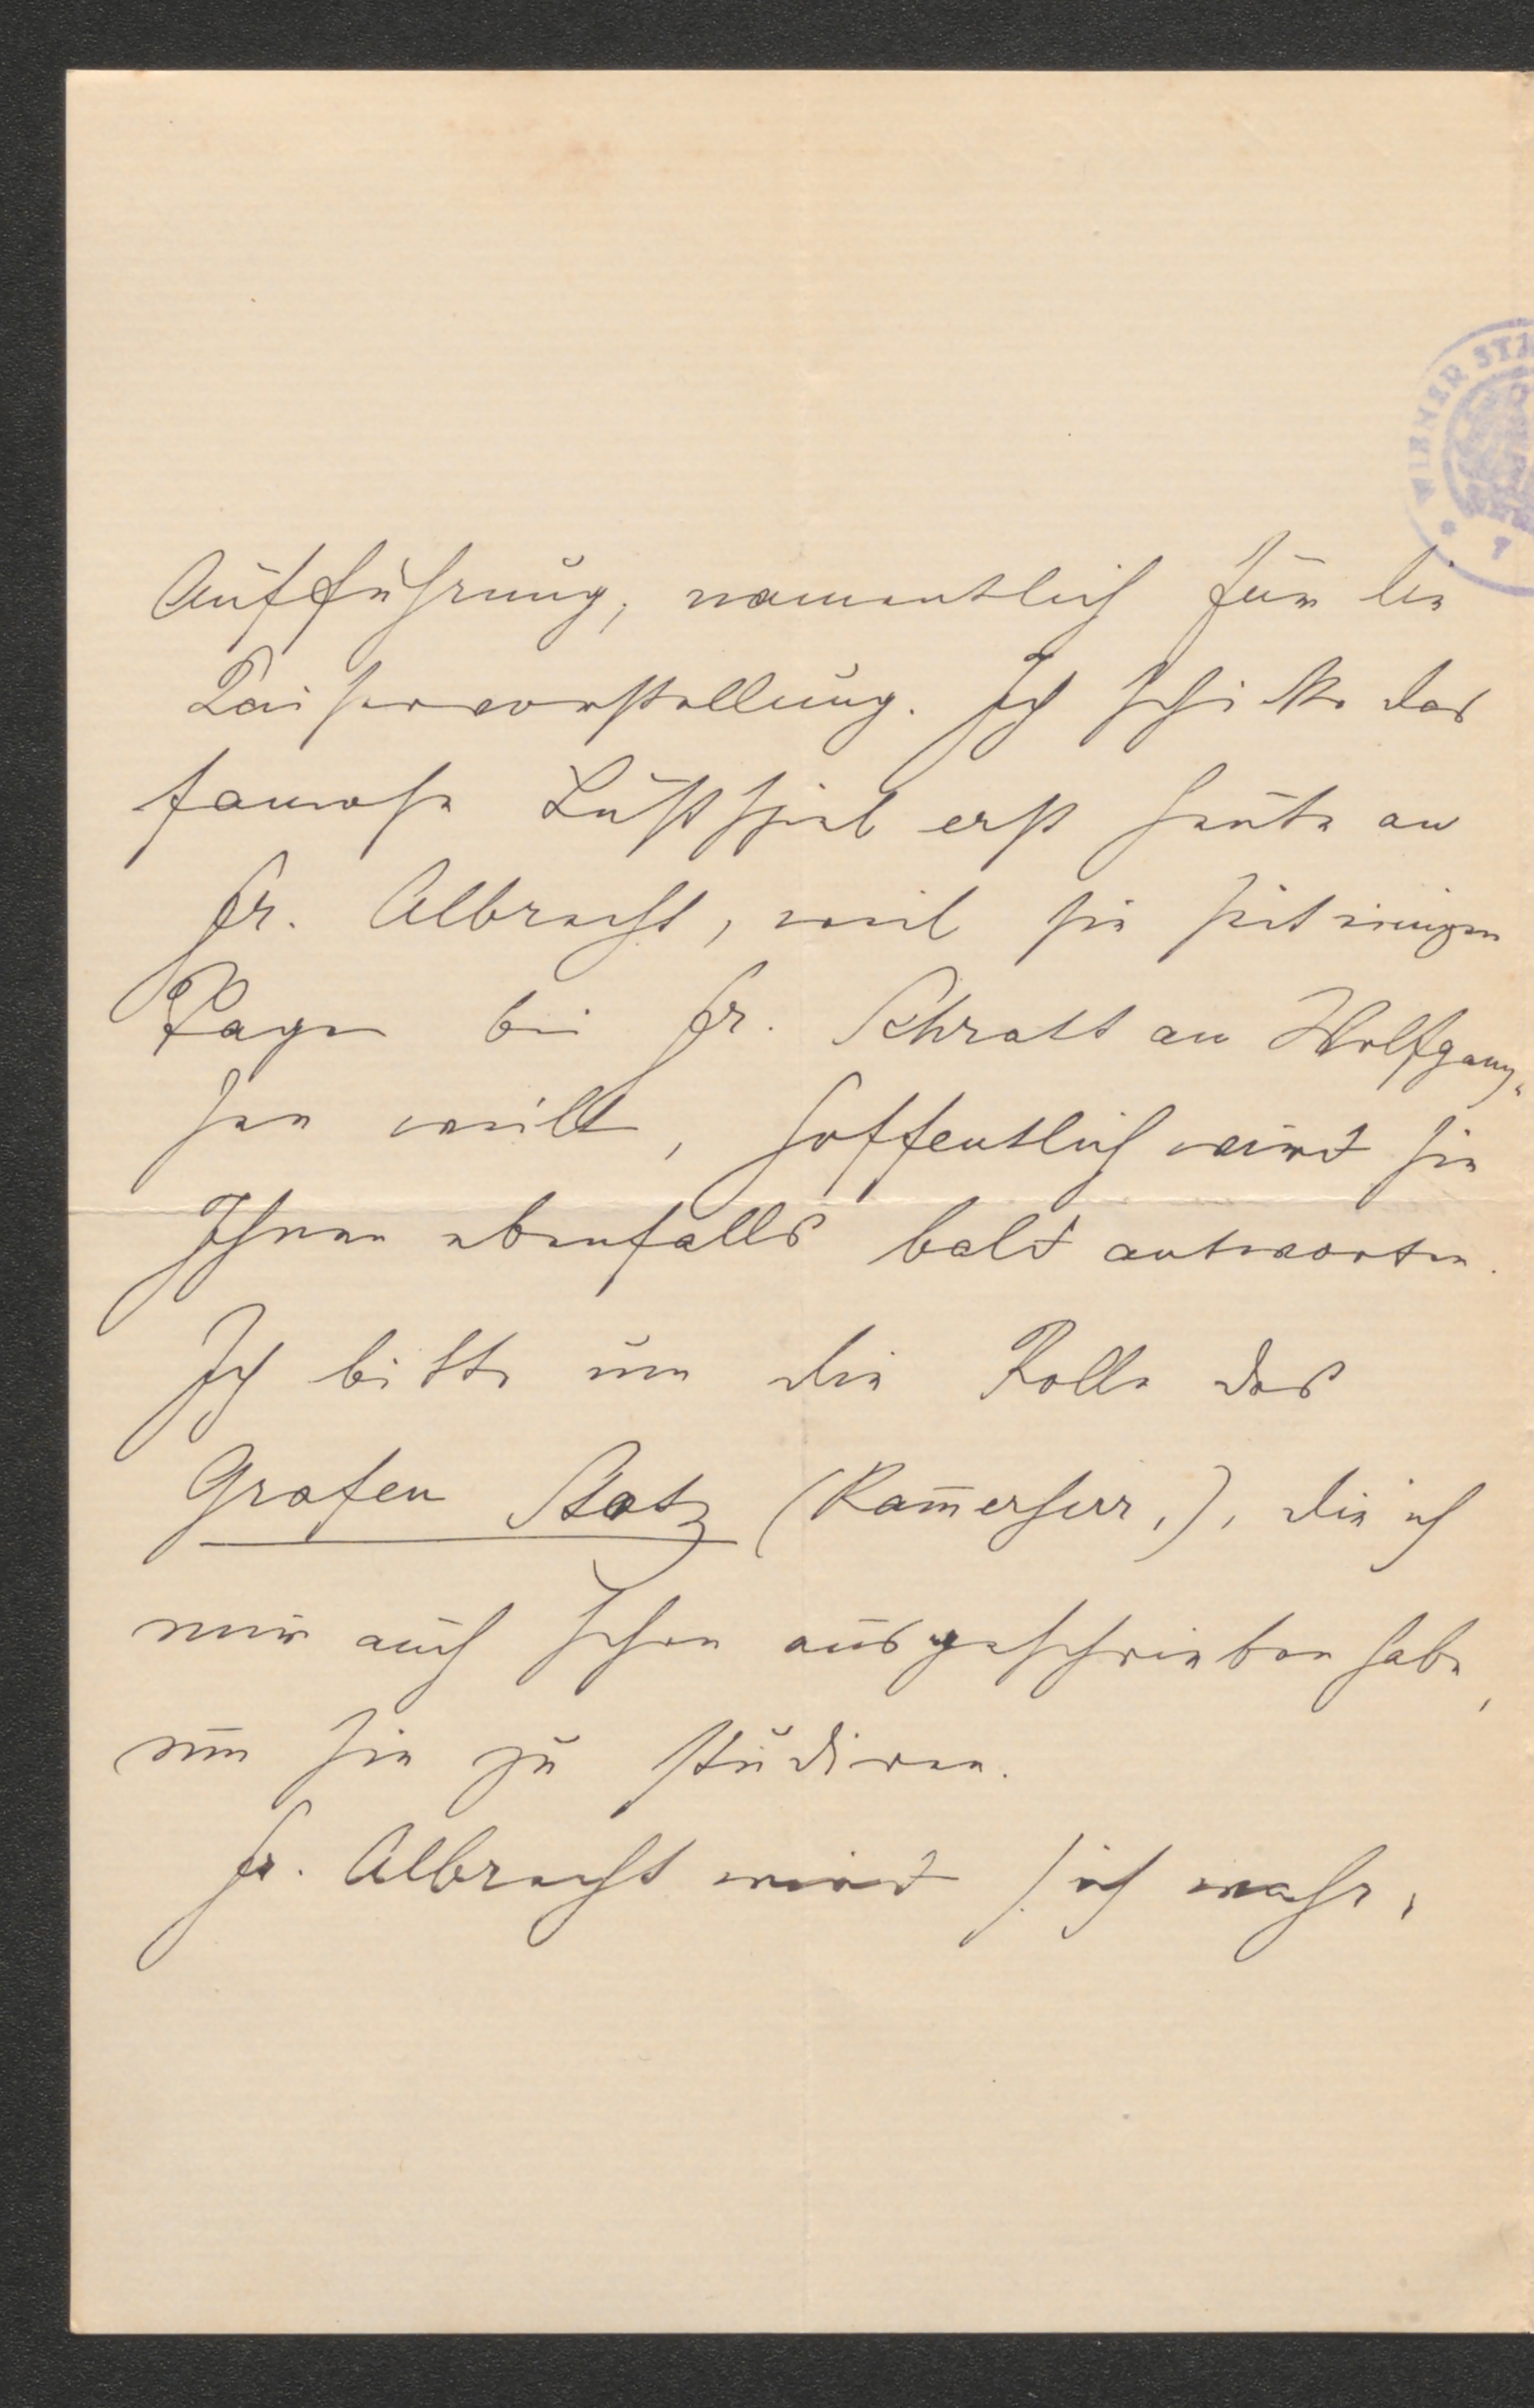 Aufführung, namentlich für die
Kaiservorstellung. Ich schickte das
famose Lustspiel erst heute an
Fr. Albrecht, weil sie seit einigen
Tagen bei Fr. Schratt am Wolfgang-
see weilt, hoffentlich wird sie
Ihnen ebenfalls bald antworten.
Ich bitte um die Rolle des
Grafen Statz (Kam̄erherr,), die ich
mir auch schon ausgeschrieben habe,
um sie zu studiren.
Fr. Albrecht wird sich wahr-
WIENER ST